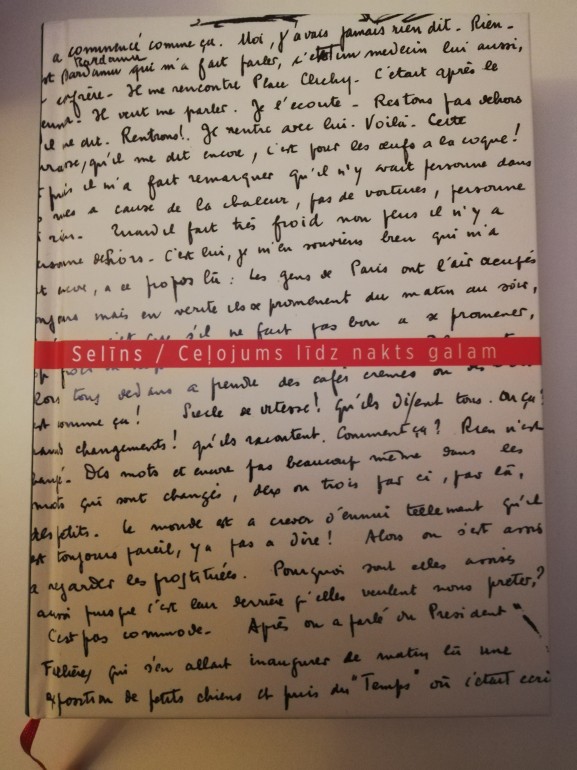 a commencé comme ça. Moi, j'avais jamais rien dit. Rien.
Bardamu
qui m'a fait parler, c'était un medecin lui aussi,
confrère. He me rencontre Place Clichy. C'était après le
He veut me parler. Je l'écoute. Restons pas dehors
il me dit. Rentrons!. Je rentre avec lui. Voilà. Cette
qu'il me dit encore, c'est pour les œufs a la coque!
puis il m'a fait remarquer qu'il n'y avait personne dans
rues a cause de la chaleur, pas de voitures, personne
rien. Quand il fait très froid non plus il n'y a
dehors. C'est lui, je m'en souviens bien qui m'a
, a ce propos là: Les gens de Paris ont l'air occupés
mais en verité ils se promenent du matin au soir,
s'il ne fait pas bon a se promener,
Selīns / Ceļojums līdz nakts galam
tous dedans a prendre des cafés cremes
comme ça! Siecle de vitesse! Qu'ils disent tous. Ou ça?
changements! qu'ils racontent. Comment ça? Rien n'est
changé. Des mots et encore pas beaucoup même dans les
mots qui sont changés, deux ou trois par ci, par là,
des petits. Le monde est a crever d'ennui teelement qu'il
est toujours pareil, y a pas a dire! Alors on s'est assis
a regarder les prostituées. Pourquoi sont elles assises
aussi puisque c'est leur derrière qu'elles veulent nous preter?
C'est pas commode. Après on a parlé du President
qui s'en allait inaugurer de matin là une
exposition de petits chiens et puis du "Temps" où c'était ecrit